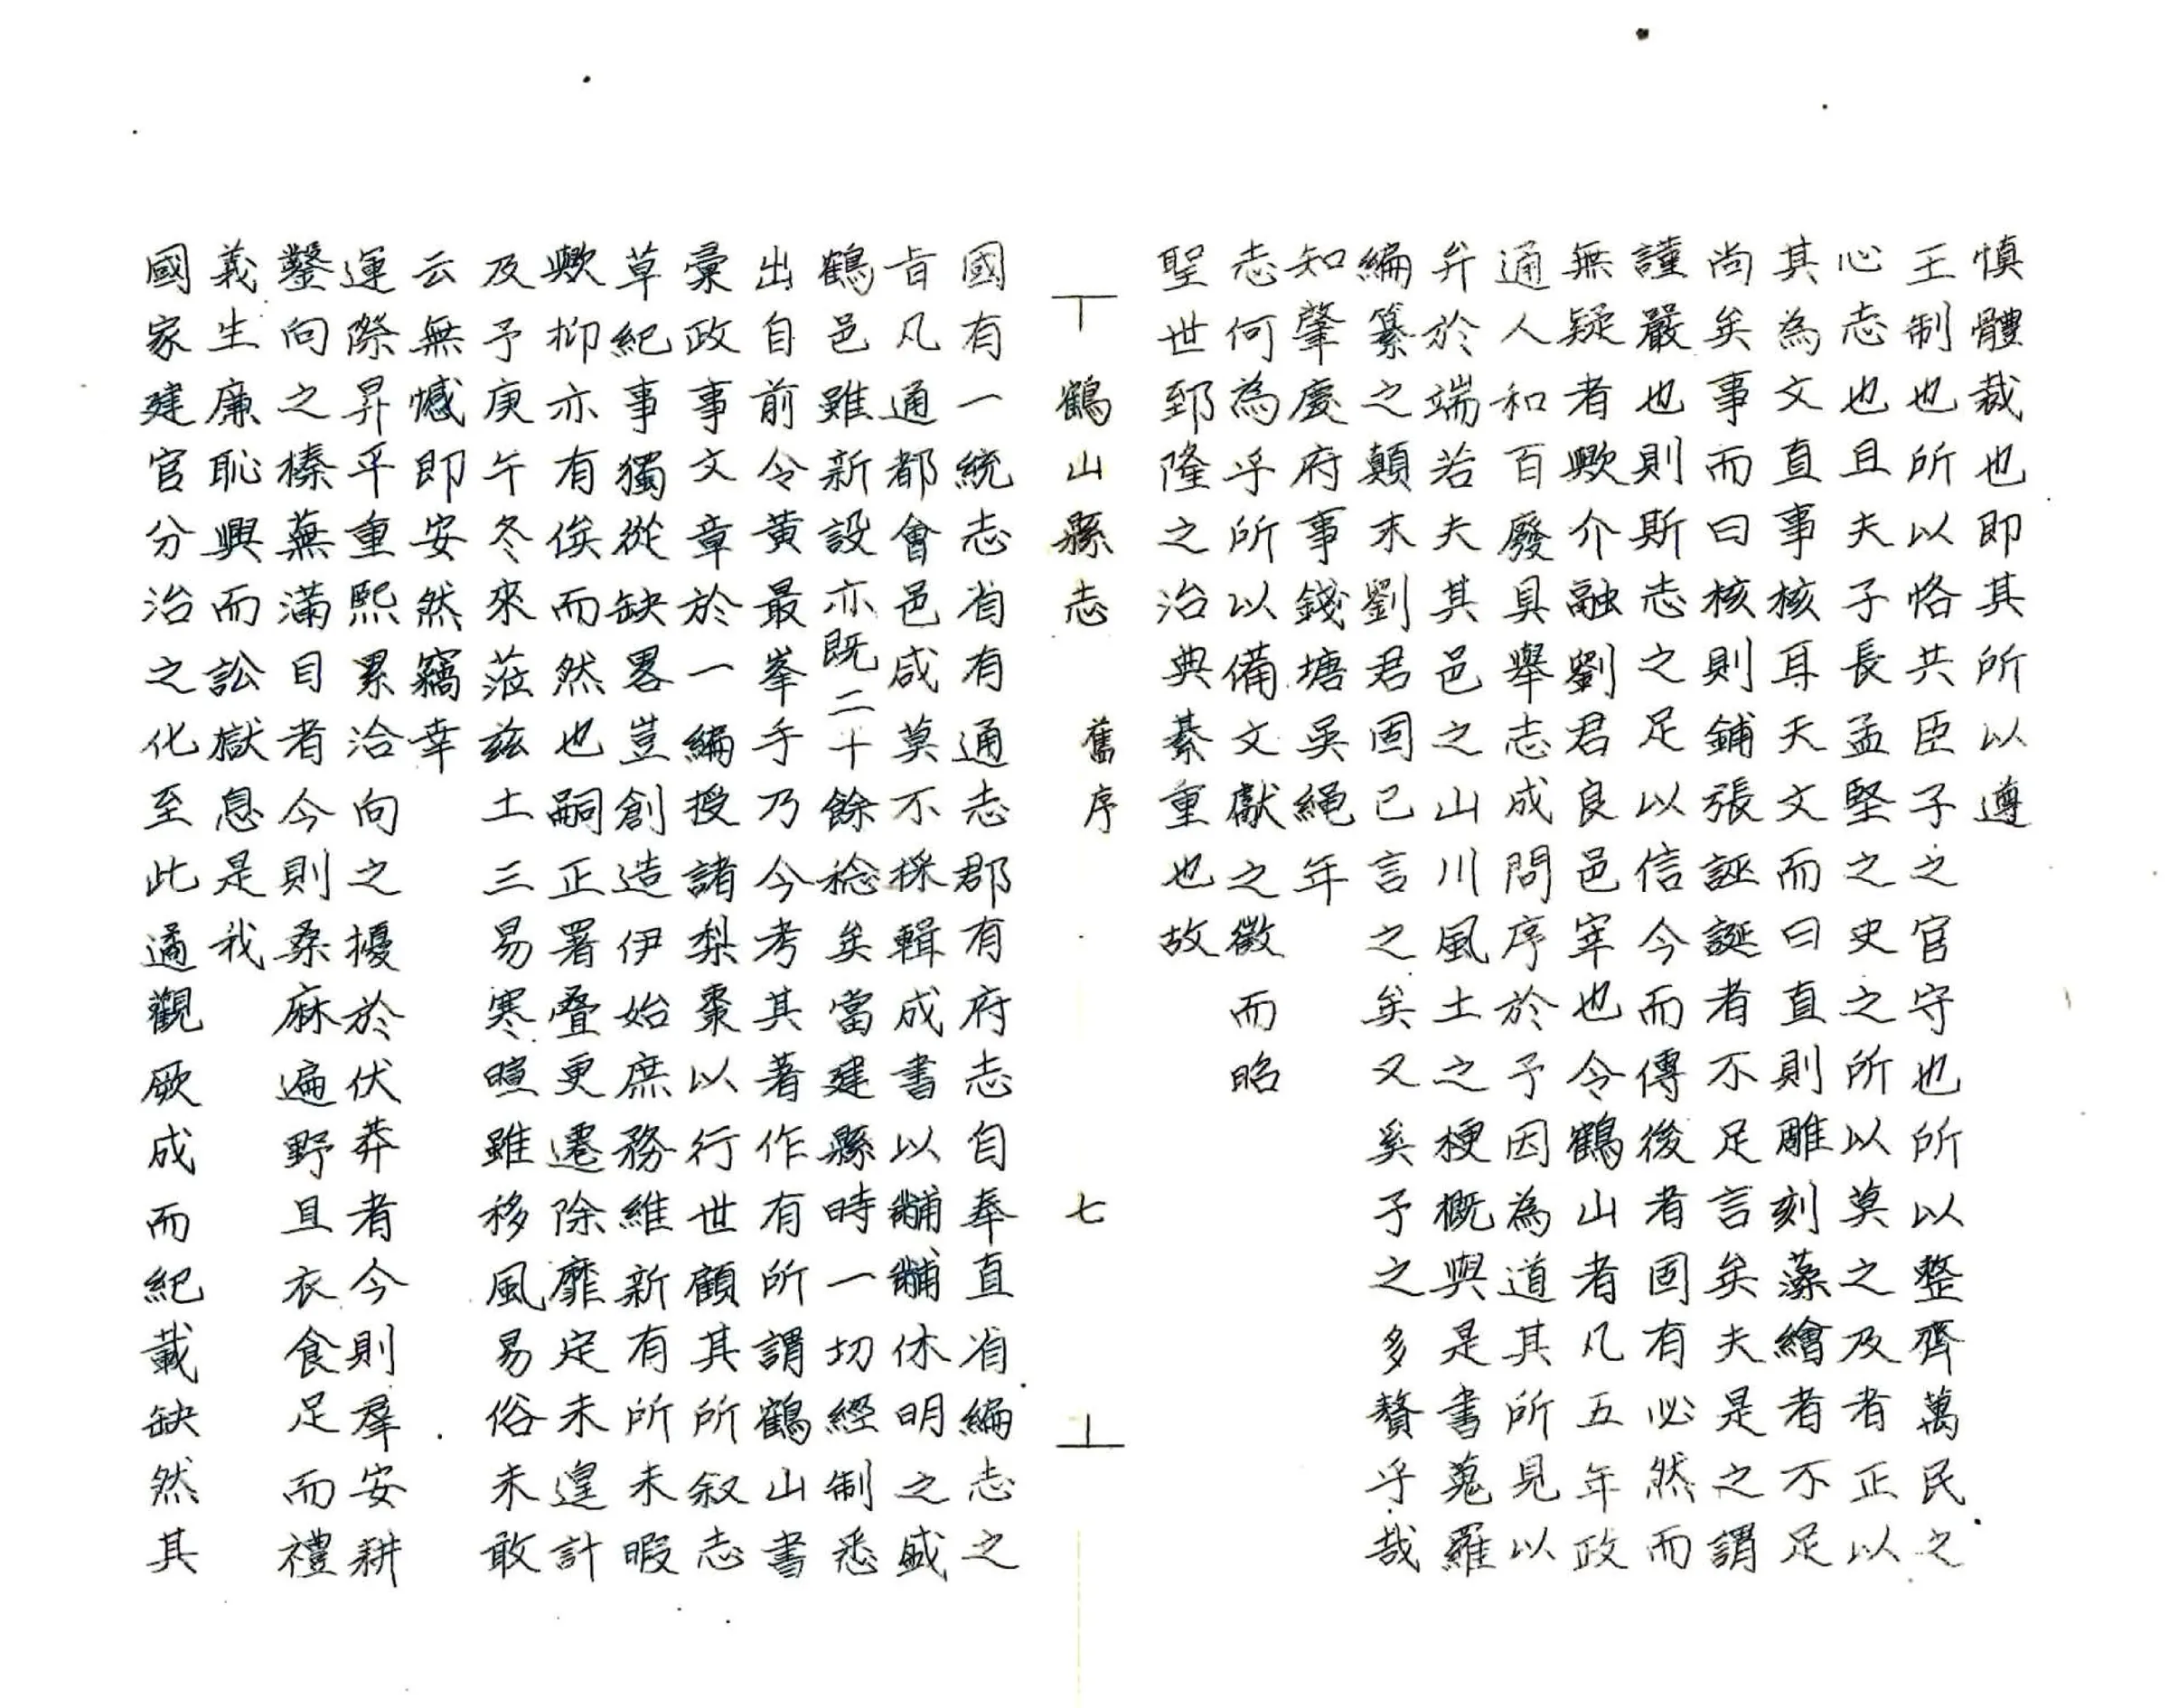 慎體裁也即其所以遵
王制也所以恪共臣子之官守也所以整齊萬民之
心志也且夫子長孟堅之史之所以莫之及者正以
其為文直事核耳天文而曰直則雕刻藻繪者不足
尚矣事而曰核則鋪張誣誕者不足言矣夫是之謂
謹嚴也則斯志之足以信今而傳後者固有必然而
無疑者歟介融劉君良邑宰也令鶴山者凡五年政
通人和百廢具舉志成問序於予因為道其所見以
弁於端若夫其邑之山川風土之梗概與是書蒐羅
編纂之顛末劉君固已言之矣又奚予之多贅乎哉
知肇慶府事錢塘吳繩年
志何為乎所以備文獻之徵而昭
聖世郅隆之治典綦重也故
鶴山縣志 舊序 七
國有一統志省有通志郡有府志自奉直省編志之
旨凡通都會邑咸莫不採輯成書以黼黼休明之盛
鶴邑雖新設亦既二十餘稔矣當建縣時一切經制悉
出自前令黃最峯手乃今考其著作有所謂鶴山書
彙政事文章於一編授諸梨棗以行世顧其所叙志
草紀事獨從缺畧豈創造伊始庶務維新有所未暇
歟抑亦有俟而然也嗣正署叠更遷除靡定未遑計
及予庚午冬來蒞兹土三易寒暄雖移風易俗未敢
云無憾即安然竊幸
運際昇平重熙累洽向之擾於伏莽者今則羣安耕
鑿向之榛蕪滿目者今則桑麻遍野且衣食足而禮
義生廉恥興而訟獄息是我
國家建官分治之化至此遹觀厥成而紀載缺然其